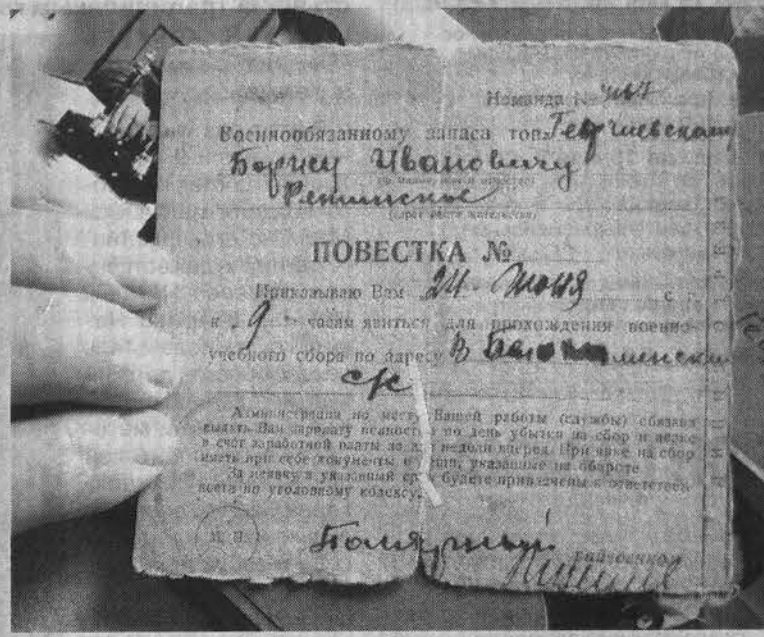 Команда №
Военнообязанному запаса тов. Георгиевскому
Борису Ивановичу
(фамилия, имя и отчество)
Ренинское
(адрес места жительства)
ПОВЕСТКА №
Приказываю Вам 24 июня с. г.
к 9 часам явиться для прохождения военно-
учебного сбора по адресу в
с/с
Администрация по месту Вашей работы (службы) обязана
выдать Вам зарплату полностью по день убытия на сбор и также
в счет заработной платы за две недели вперед. При явке на сбор
иметь при себе документы и вещи, указанные на обороте
За неявку в указанный срок будете привлечены к ответствен-
ности по уголовному кодексу.
М. П.
райвоенком